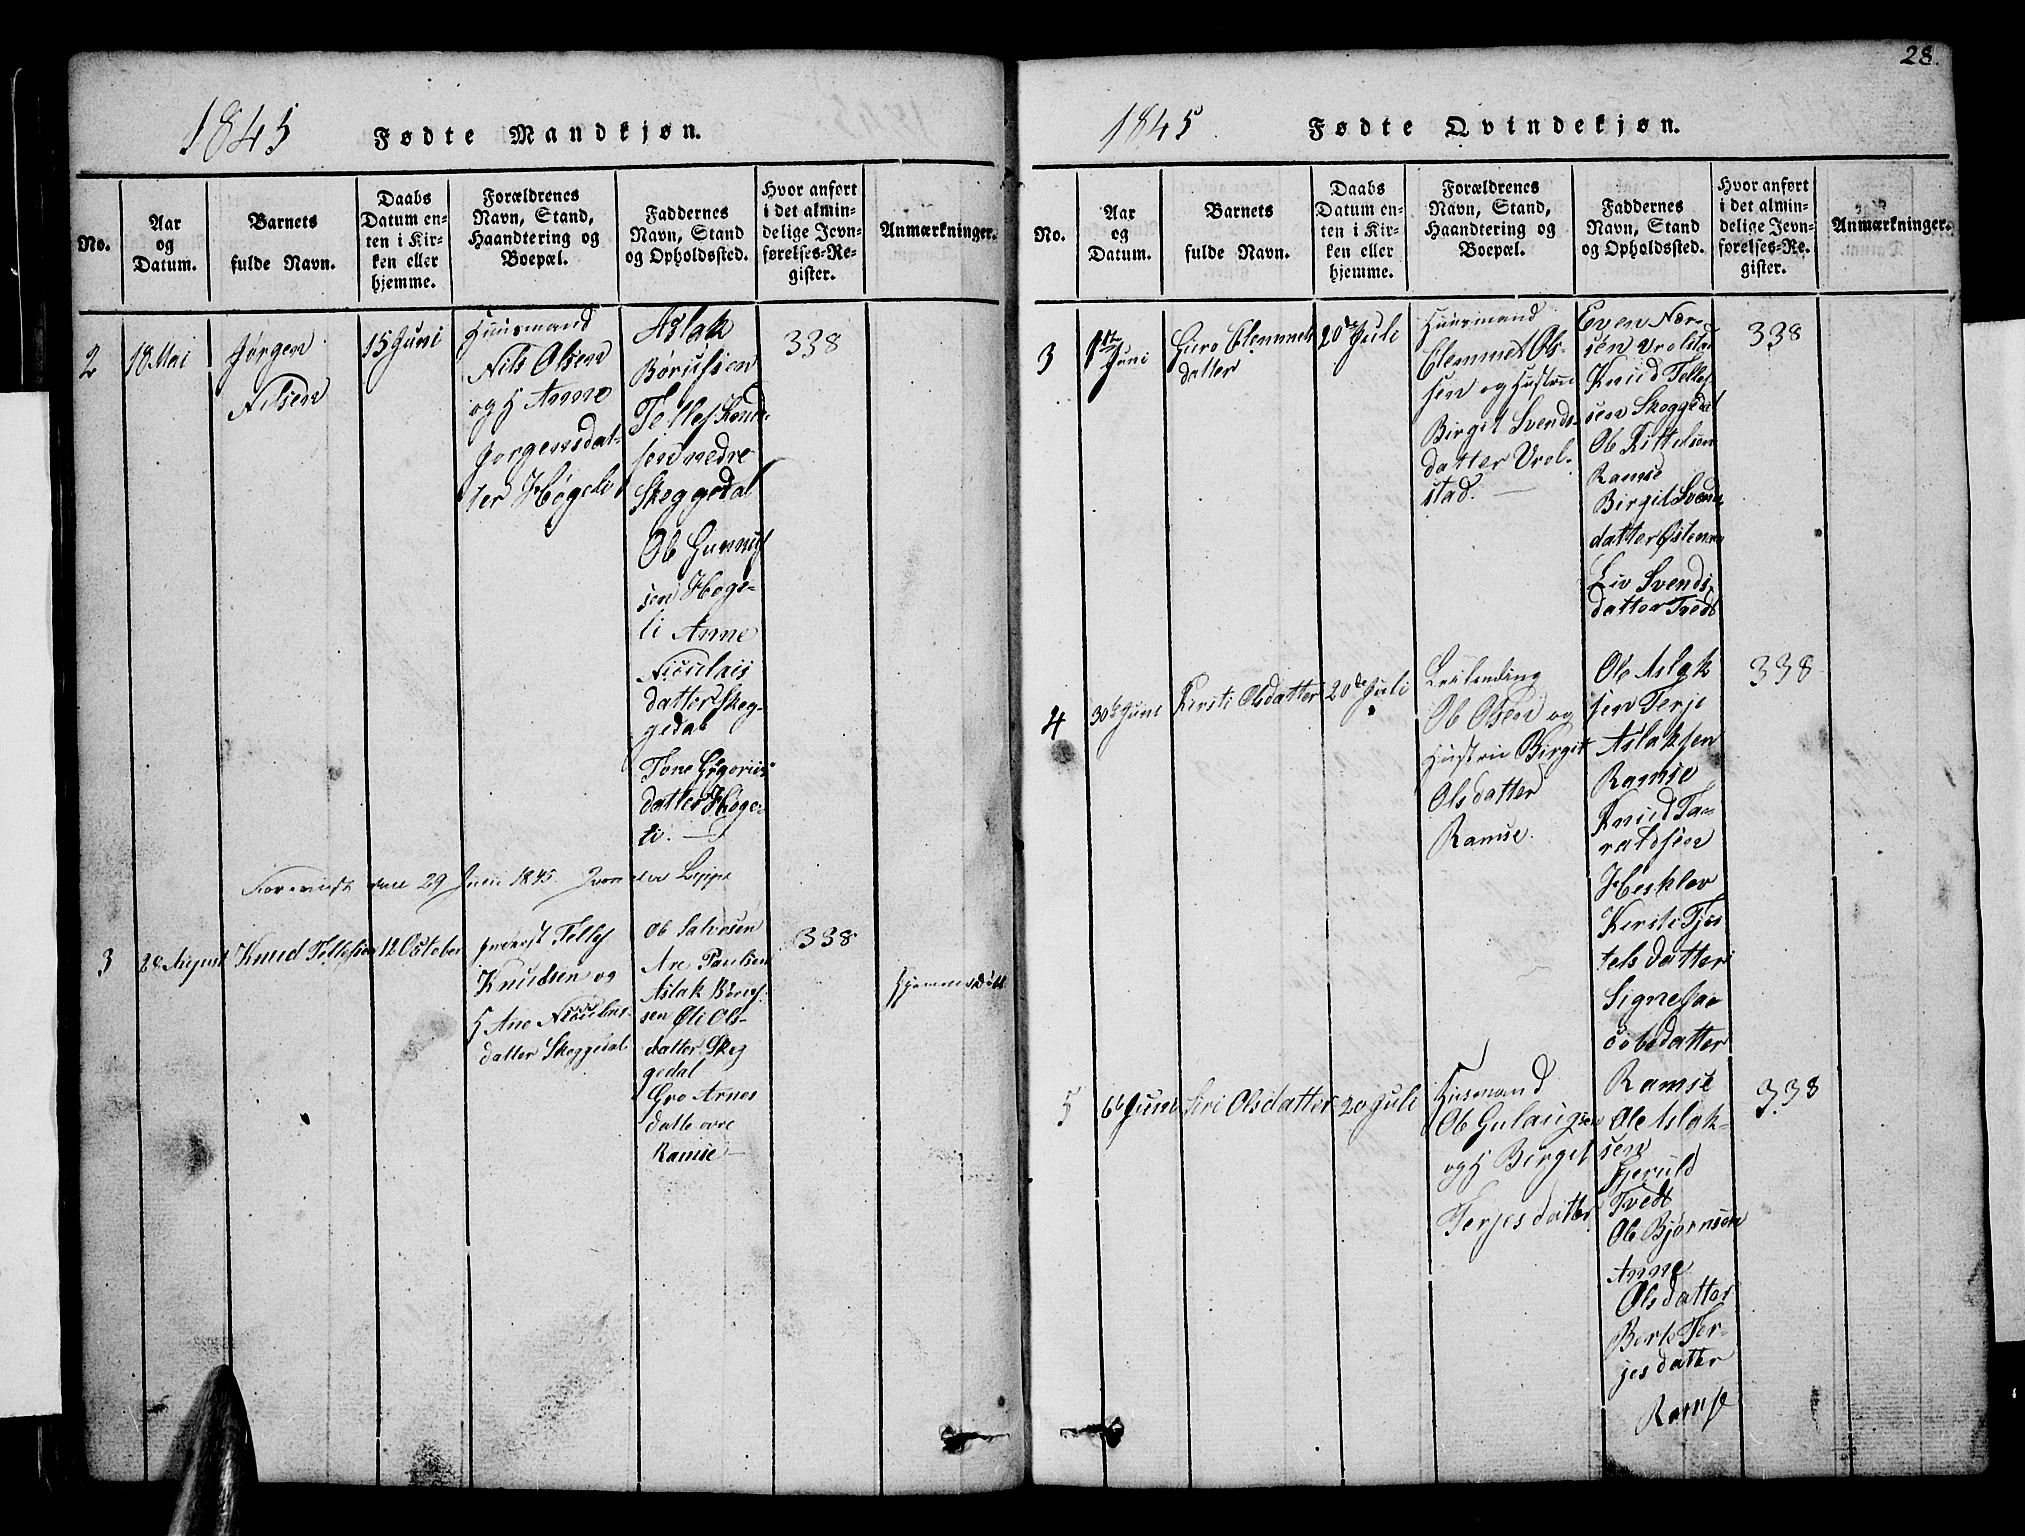 28.
1845
Fødte Mandkjøn.
No.
Aar
og
Datum.
Barnets
fulde Navn.
Daabs
Datum en-
ten i Kir-
ken eller
hjemme.
Forældrenes
Navn, Stand,
Haandtering og
Boepæl.
Faddernes
Navn, Stand
og Opholdssted.
Hvor anført
i det almin-
delige Jevn-
førelses-Re-
gister.
Anmærkninger.
2
18 Mai
Jørgen
Nilsen
15 Juni
Huusmand
Nils Olsen
og H Anne
Jorgensdat-
ter Høgeli
Aslak
Børufsen
Tellef Knud-
sen nedre
Skeggedal
Ole Gunnuf
sen Høge-
li Anne
Niculais
datter Skeg-
gedal
Tone Gigorius
datter Høge-
li.
338
den 29 Juni 1845.
3
28 August
Knud Tellefsen
12 October
Tellef
Knudsen og
H Ane Niculais
datter Skeggedal
Ole Salvesen
Are Paulsen
Aslak Børuf-
sen Øli Ols-
datter Skeg
gedal
Gro Arnes
datte øvre
Ramse
338
Hjemmedøbt
1845.
Fødte Qvindekjøn.
No.
Aar
og
Datum.
Barnets
fulde Navn.
Daabs
Datum en-
ten i Kir-
ken eller
hjemme.
Forældrenes
Navn, Stand,
Haandtering og
Boepæl.
Faddernes
Navn, Stand
og Opholdssted.
Hvor anført
i det almin-
delige Jevn-
førelses-Re-
gister.
Anmærkninger.
3
1te Juni
Guro Clemmets
datter
20de Juli
Huusmand
Clemmet Ol-
sen og Hustru
Birgit Svends-
datter Vrol-
stad.
Even Nær-
sen Vrolstad
Knud Tellef
sen Skeggedal
Ole Kittelsen
Ramse
Birgit Svens
datter
Liv Svends-
datter Tvedt
338
4
30te Juni
Kirsti Olsdatter
20de Juli
Leilending
Ole Olsen og
Hustru Birgit
Olsdatter
Ramse.
Ole Aslak
sen Terje
Aslaksen
Ramse
Knud Ta-
raldsen
Hesklov
Kirsti Tjøs
tels datter
Signe Jac
cobsdatter
Ramse
338
5
6te Juni
Siri Olsdatter
20 Juli
Husmand
Ole Gulaugsen
og H Birgit
Terjesdatter
Ole Aslak-
sen
Gjeruld
Tvedt
Ole Bjørnsen
Anne
Olsdatter
Berte Ter-
jesdatter
Ramse
338